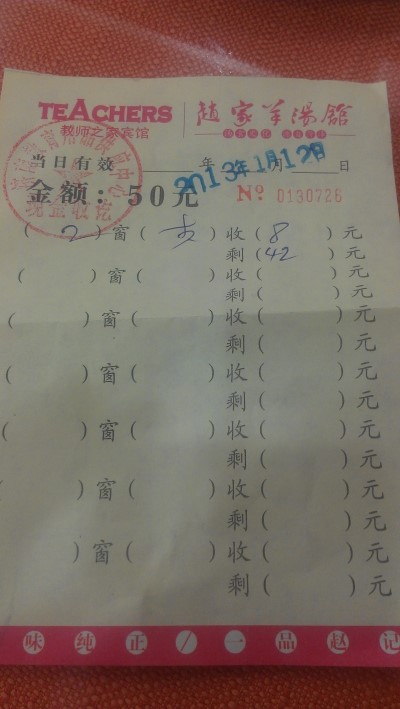 TEACHERS 赵家羊汤馆
教师之家宾馆
当日有效 年 月 日
2013年1月12日
金额：50元 No 0130726
(2)窗( )收(8)元
剩(42)元
( )窗( )收( )元
剩( )元
( )窗( )收( )元
剩( )元
( )窗( )收( )元
剩( )元
( )窗( )收( )元
剩( )元
( )窗( )收( )元
剩( )元
)窗( )收( )元
剩( )元
味纯正/一品赵记